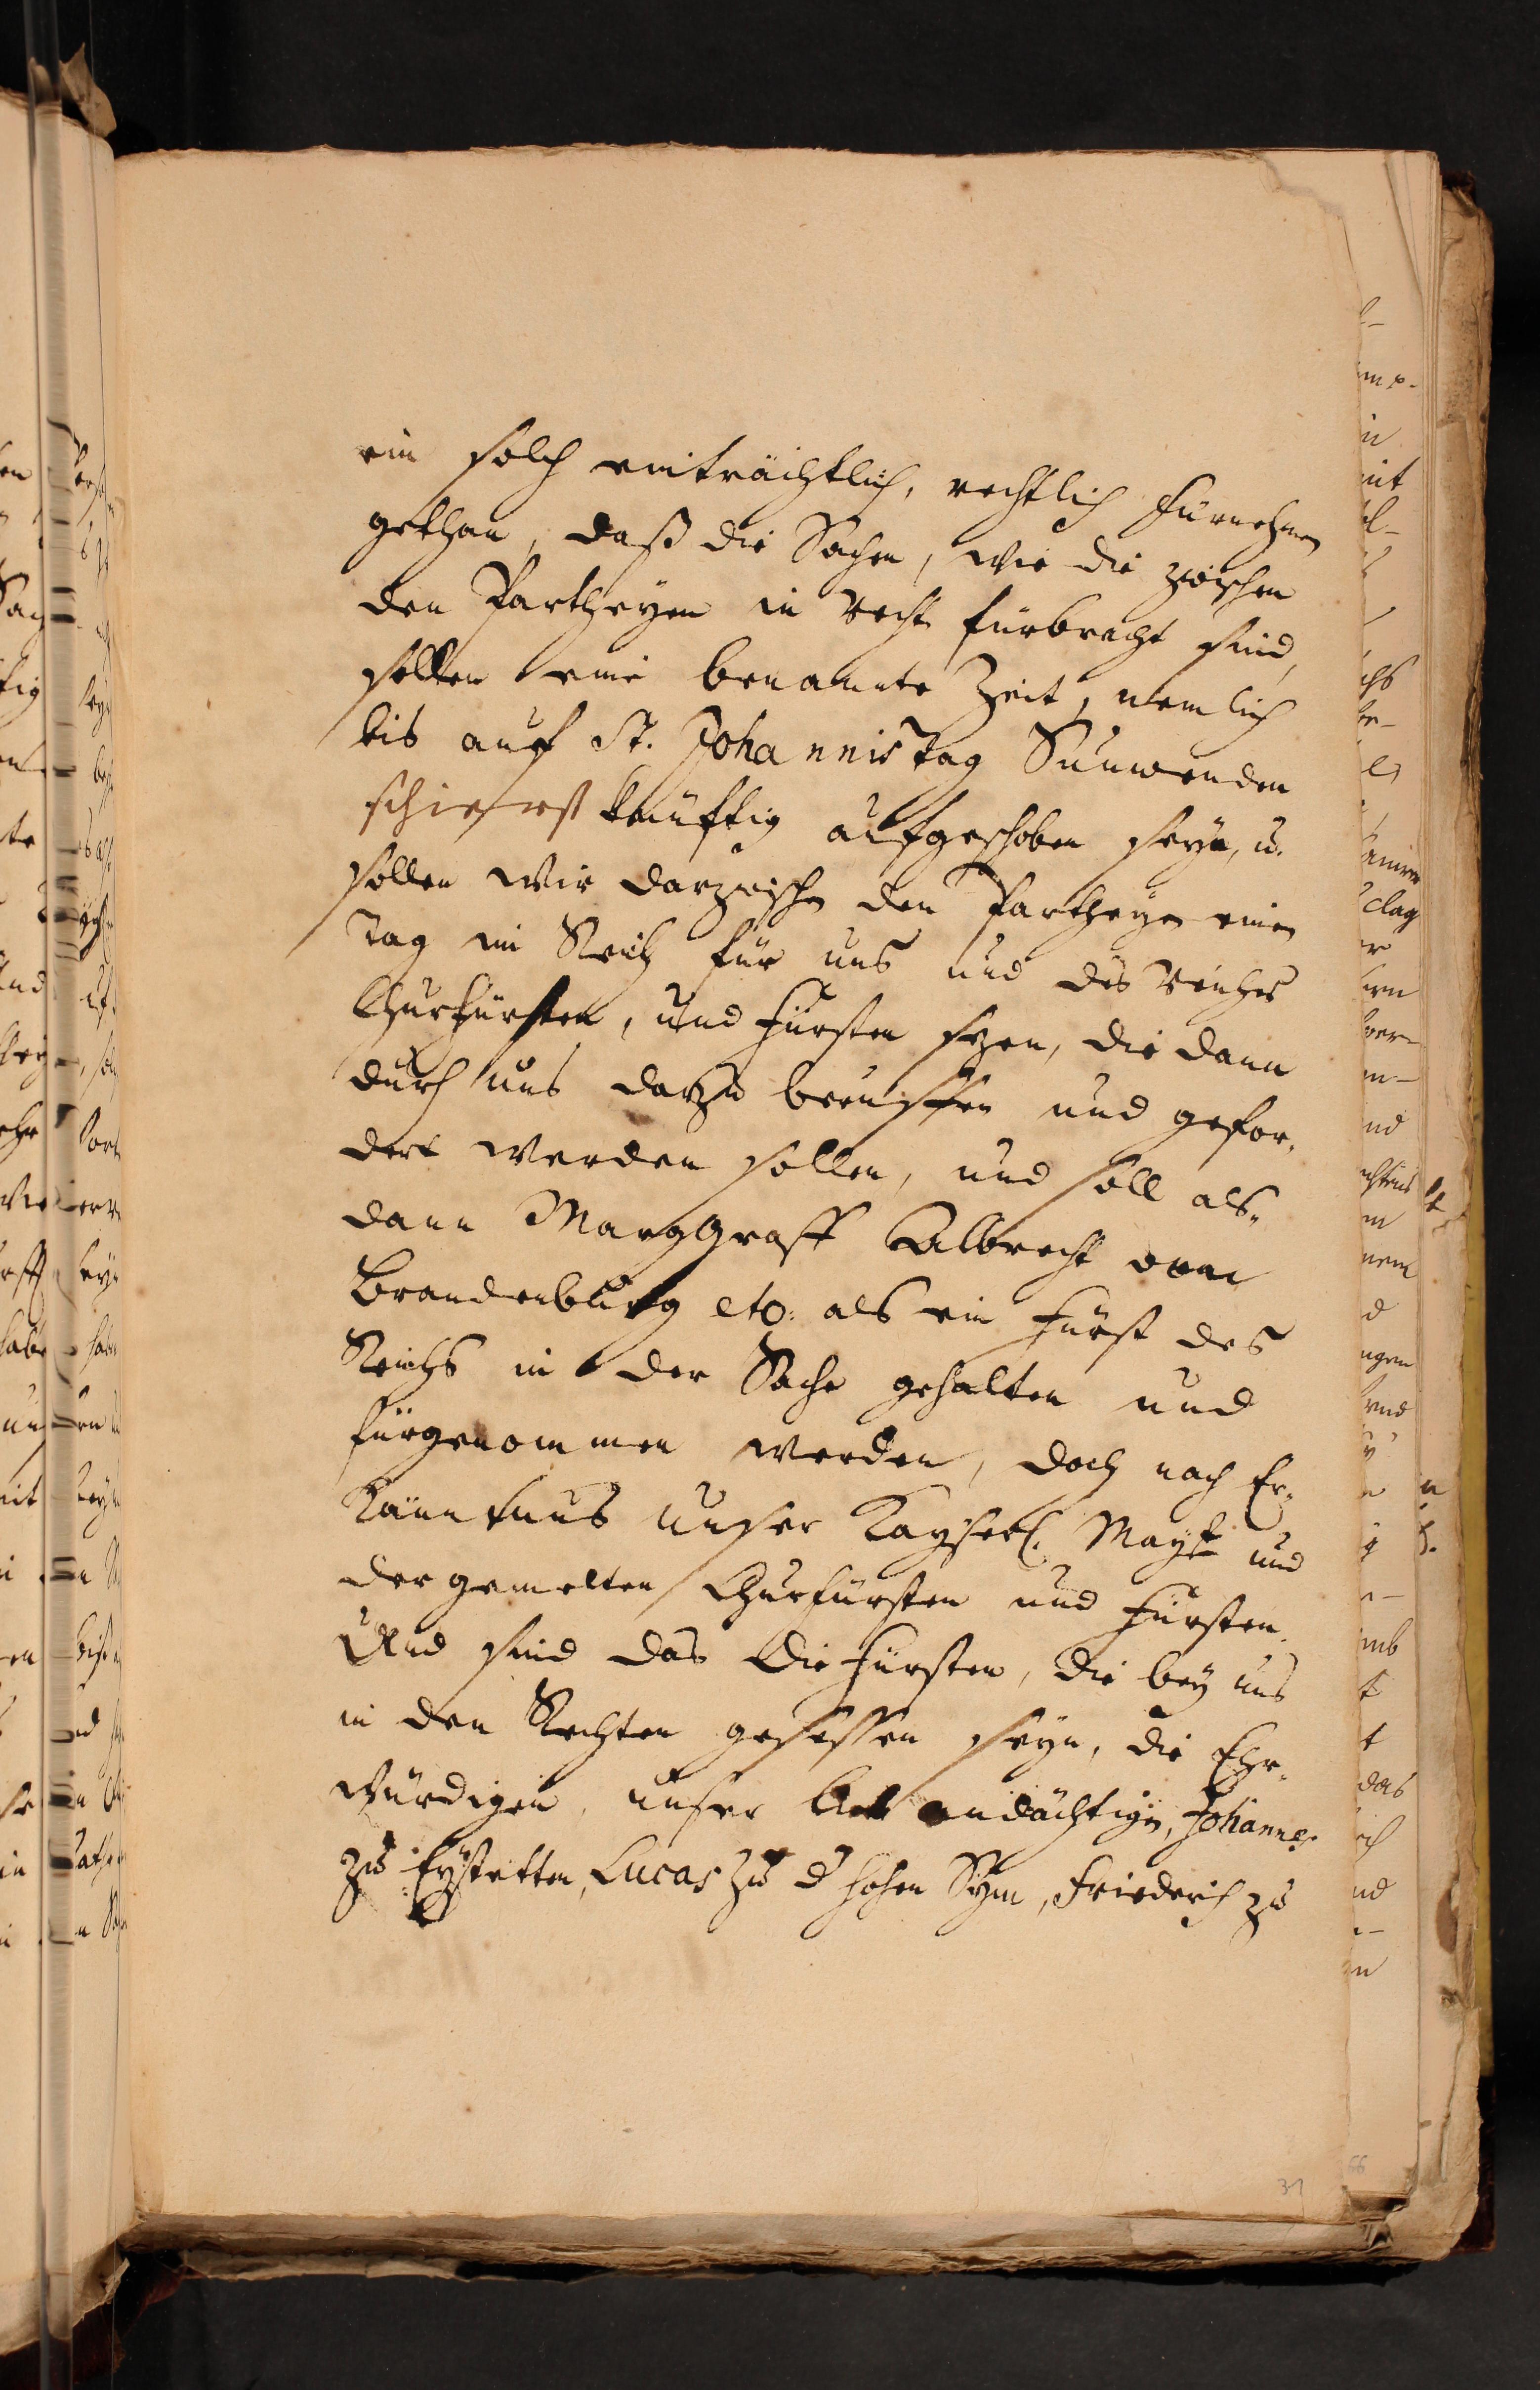 ein solch einträchtlich, rechtlich fürnehmen
gethan, daß die Sachen, wie die zwischen
den Partheyen in Recht fürbracht sind,
sollen eine benannte Zeit, nemlich
bis auf St. Johannis Tag Sunwenden
schierst künftig aufgeschoben seyn, u.
sollen wir darzwischen den Partheyen einen
Tag im Reich für uns und des Reiches
Churfürsten, und Fürsten sezen, die dann
durch uns darzu beruffen und gefor-
dert werden sollen, und soll als-
dann Marggraff Albrecht von
Brandenburg etc. als ein Fürst des
Reichs in der Sache gehalten und
fürgenommen werden, doch nach Er-
känntnus unser Kayserl. Mayt und
der gemelten Churfürsten und Fürsten.
Und sind das die Fürsten, die bey uns
in den Rechten gesessen seyn, die Ehr-
würdigen, unser andächtigen, Johannes
zu Eystetten, Lucas zu d hohen Syn, Friederich zu